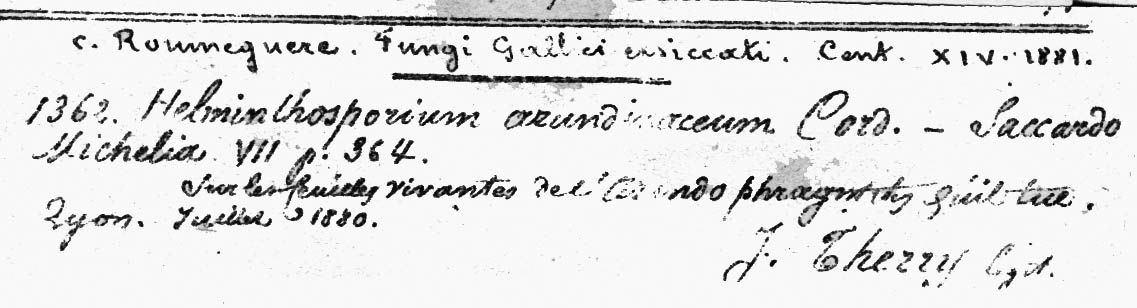 C. Roumeguere. Fungi Gallici exsiccati. Cent. XIV. 1881.
1362. Helminthosporium arundinaceum Cord. – Saccardo
Michelia VII p. 364.
Sur les feuilles vivantes de l'Arundo phragmitis qu'il tue.
Lyon. Juillet 1880.
J. Therry